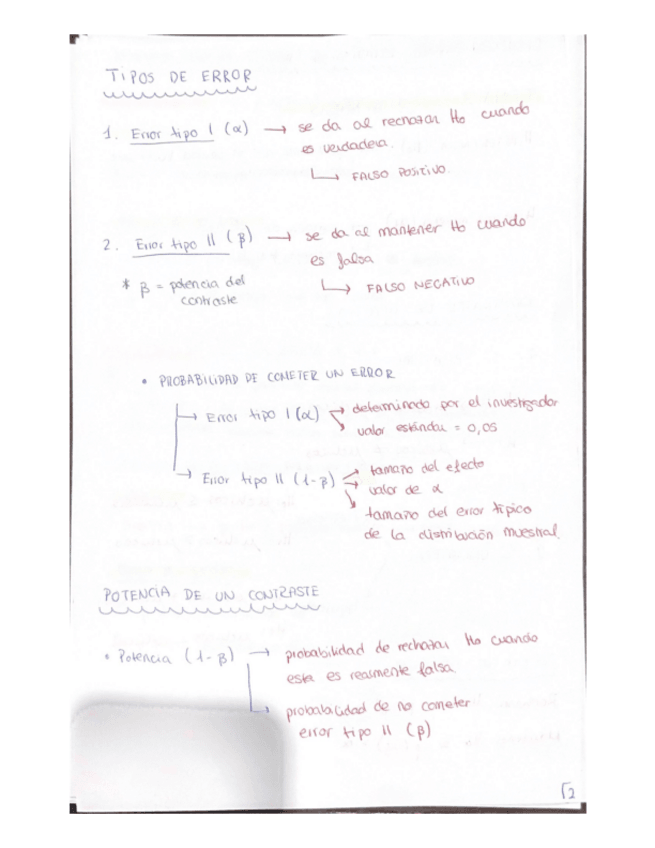 TIPOS DE ERROR
1. Error tipo I (α) → se da al rechazar Ho cuando
es verdadera.
↳ FALSO POSITIVO.
2. Error tipo II (β) → se da al mantener Ho cuando
es falsa
* β = potencia del
contraste
↳ FALSO NEGATIVO
• PROBABILIDAD DE COMETER UN ERROR
→ Error tipo I (α) → determinado por el investigador
↘ valor estándar = 0,05
→ Error tipo II (1-β) → tamaño del efecto
→ valor de α
↘ tamaño del error típico
de la distribución muestral.
POTENCIA DE UN CONTRASTE
• Potencia (1-β) → probabilidad de rechazar Ho cuando
esta es realmente falsa.
↳ probabilidad de no cometer
error tipo II (β)
2